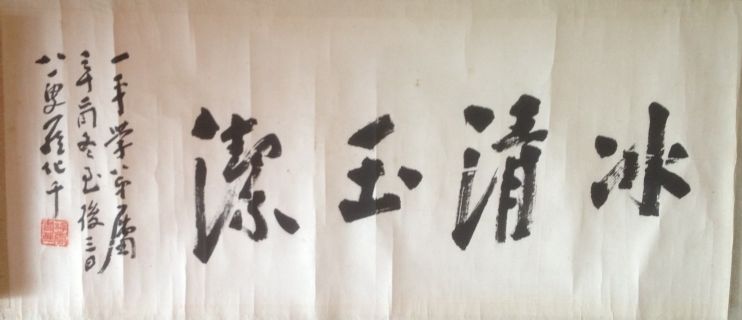 冰清玉潔
一平學弟屬
辛酉冬至後三日
八一叟化千